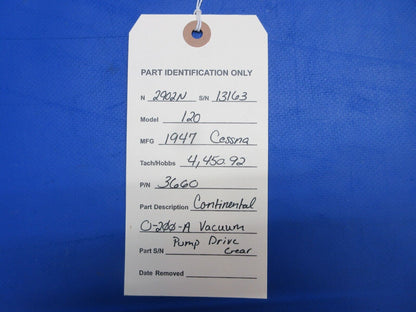 PART IDENTIFICATION ONLY
N 2902N S/N 13163
Model 120
MFG 1947 Cessna
Tach/Hobbs 4,450.92
P/N 3660
Part Description Continental
O-200-A Vacuum
Pump Drive
Part S/N Gear
Date Removed